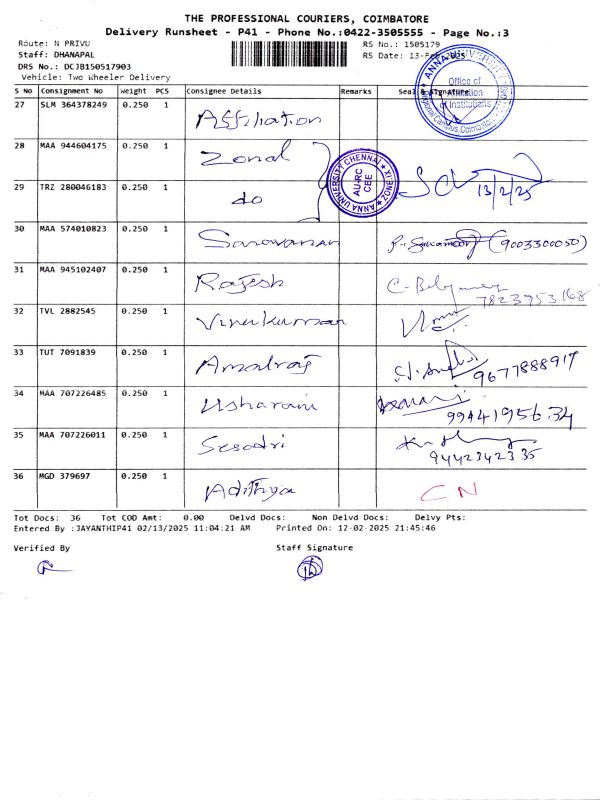 THE PROFESSIONAL COURIERS, COIMBATORE
Delivery Runsheet - P41 - Phone No.:0422-3505555 - Page No.:3
Route: N PRIVU
RS No.: 1505179
Staff: DHANAPAL
RS Date: 13-Feb-2025
DRS No.: DCJB150517903
Vehicle: Two Wheeler Delivery
S No Consignment No Weight PCS Consignee Details Remarks Seal & Signature
ANNA UNIVERSITY
Office of
Affiliation
of Institutions
Regional Campus, Coimbatore
27 SLM 364378249 0.250 1 Affiliation
28 MAA 944604175 0.250 1 Zonal
ANNA UNIVERSITY CHENNAI
AU-RC
CEE
29 TRZ 280046183 0.250 1 do 13/2/25
30 MAA 574010823 0.250 1 Saravanan (9003300050)
31 MAA 945102407 0.250 1 Rajesh 7823953168
32 TVL 2882545 0.250 1 Vinukumar
33 TUT 7091839 0.250 1 Amalraj 9677888917
34 MAA 707226485 0.250 1 Usharani 9944195634
35 MAA 707226011 0.250 1 Sesadri 9442342335
36 MGD 379697 0.250 1 Adithya CN
Tot Docs: 36 Tot COD Amt: 0.00 Delvd Docs: Non Delvd Docs: Delvy Pts:
Entered By :JAYANTHIP41 02/13/2025 11:04:21 AM Printed On: 12-02-2025 21:45:46
Verified By Staff Signature